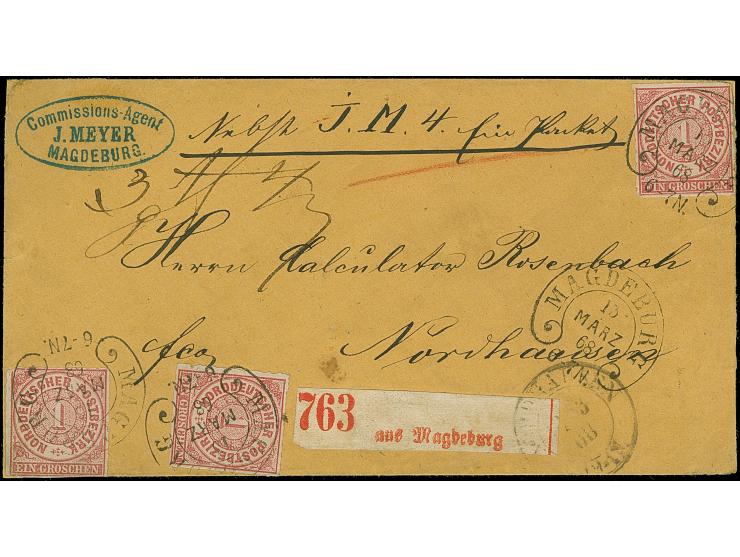 Commissions-Agent
J. MEYER
MAGDEBURG.
Nebst J. M. 4. Ein Packet
NORDDEUTSCHER POSTBEZIRK
1
EIN GROSCHEN
MAGDEBURG
MÄRZ
68
6-7N.
Herrn Calculator Rosenbach
MAGDEBURG
13
MÄRZ
68
fco
Nordhausen
NORDDEUTSCHER POSTBEZIRK
1
EIN GROSCHEN
6-7N.
NORDDEUTSCHER POSTBEZIRK
1
MÄRZ
68
763
aus Magdeburg